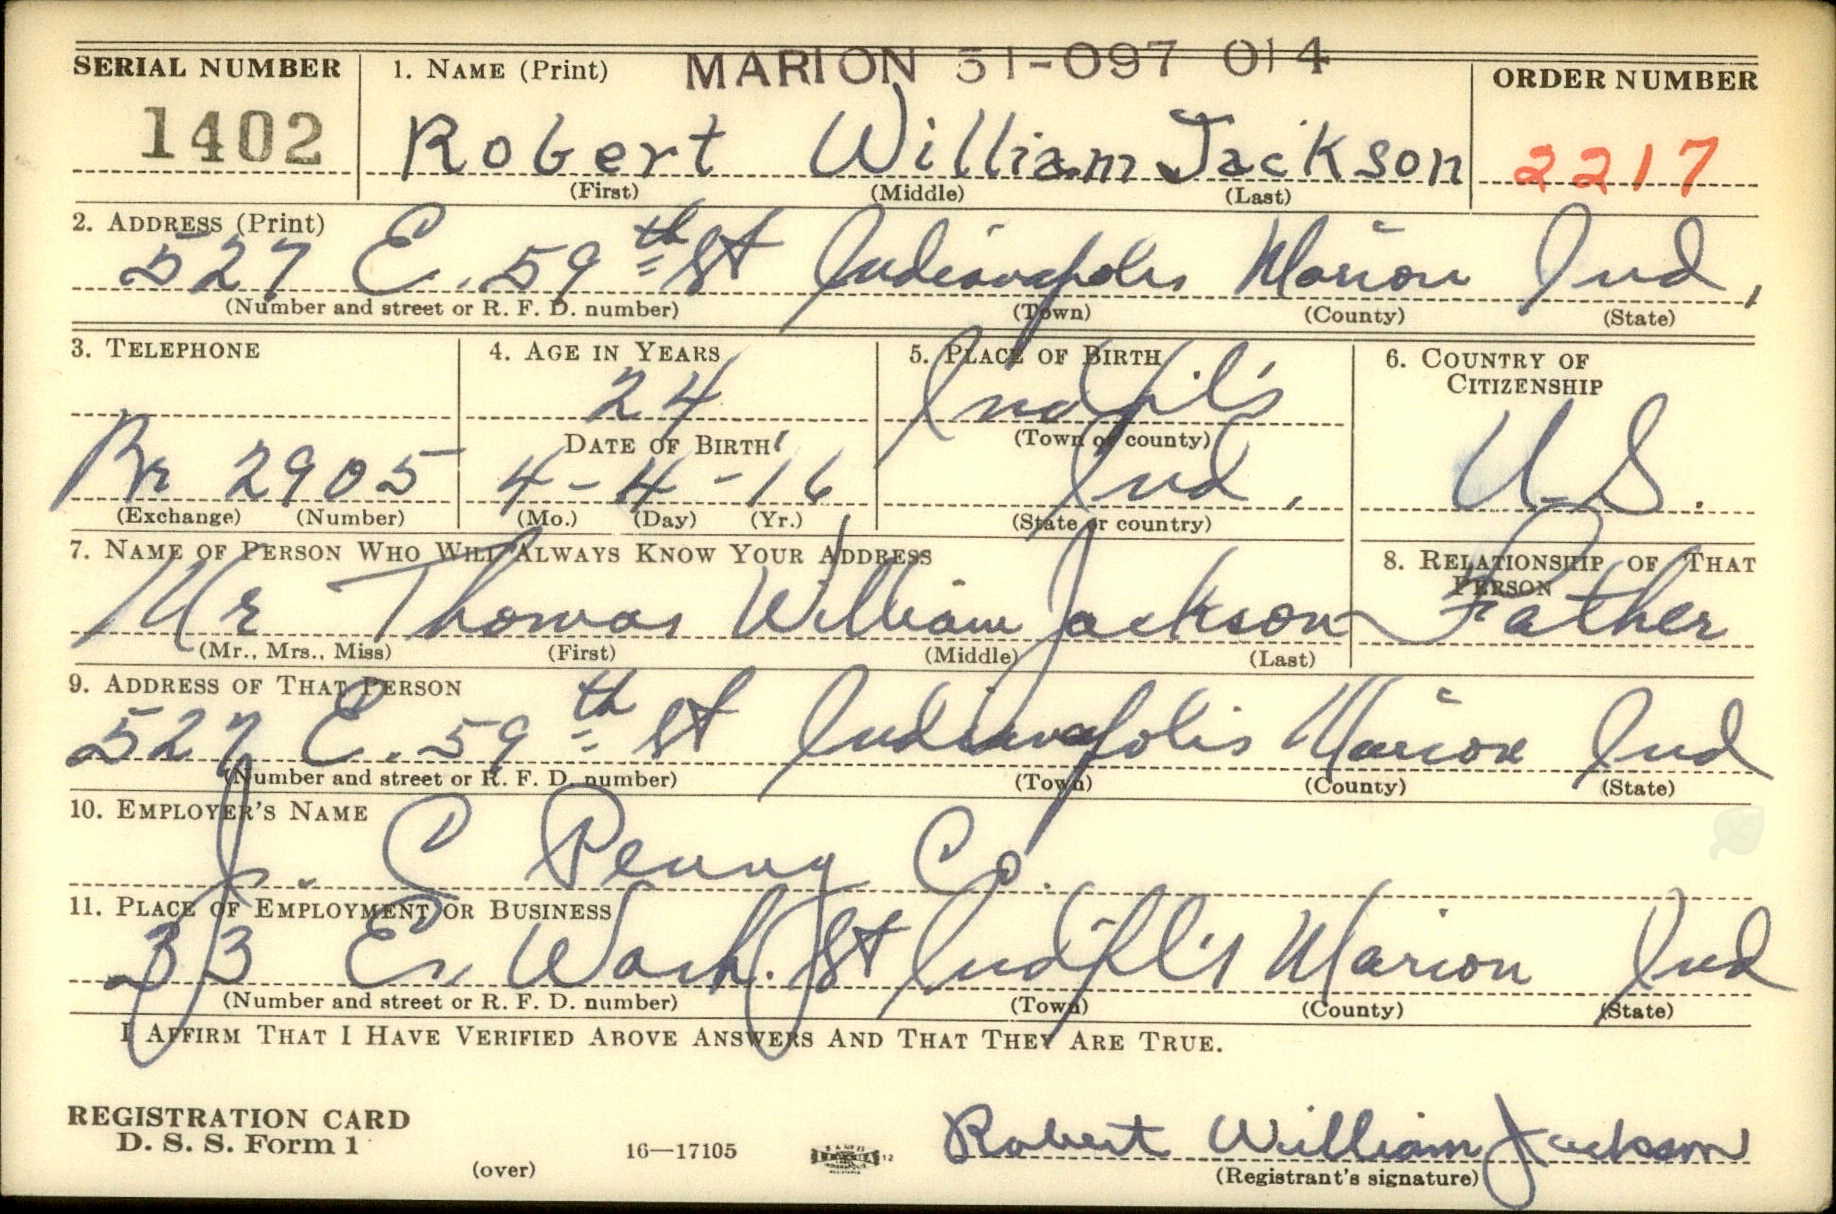 MARION 51-097 014
SERIAL NUMBER 1. NAME (Print) ORDER NUMBER
1402 Robert William Jackson 2217
(First) (Middle) (Last)
2. ADDRESS (Print)
527 E. 59th St Indianapolis Marion Ind,
(Number and street or R. F. D. number) (Town) (County) (State)
3. TELEPHONE 4. AGE IN YEARS 5. PLACE OF BIRTH 6. COUNTRY OF CITIZENSHIP
24 Ind'pl's
DATE OF BIRTH (Town or county)
2905 4-4-16 Ind. U.S.
(Exchange) (Number) (Mo.) (Day) (Yr.) (State or country)
7. NAME OF PERSON WHO WILL ALWAYS KNOW YOUR ADDRESS 8. RELATIONSHIP OF THAT PERSON
Mr Thomas William Jackson Father
(Mr., Mrs., Miss) (First) (Middle) (Last)
9. ADDRESS OF THAT PERSON
527 E. 59th St Indianapolis Marion Ind
(Number and street or R. F. D. number) (Town) (County) (State)
10. EMPLOYER'S NAME
J. C Penny Co.
11. PLACE OF EMPLOYMENT OR BUSINESS
33 E. Wash. St Ind'pl's Marion Ind
(Number and street or R. F. D. number) (Town) (County) (State)
I AFFIRM THAT I HAVE VERIFIED ABOVE ANSWERS AND THAT THEY ARE TRUE.
REGISTRATION CARD
D. S. S. Form 1 16—17105 Robert William Jackson
(over) (Registrant's signature)